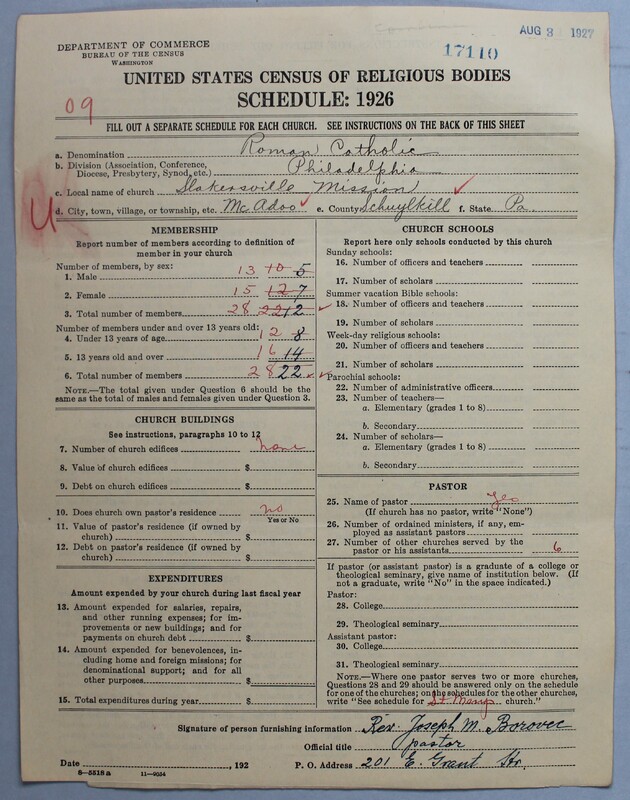 AUG 3 1927
17110
DEPARTMENT OF COMMERCE
BUREAU OF THE CENSUS
WASHINGTON
UNITED STATES CENSUS OF RELIGIOUS BODIES
SCHEDULE: 1926
09
FILL OUT A SEPARATE SCHEDULE FOR EACH CHURCH. SEE INSTRUCTIONS ON THE BACK OF THIS SHEET
a. Denomination Roman Catholic
b. Division (Association, Conference, Diocese, Presbytery, Synod, etc.) Philadelphia
c. Local name of church Slakersville Mission
d. City, town, village, or township, etc. Mc Adoo e. County Schuylkill f. State Pa
U
MEMBERSHIP
Report number of members according to definition of
member in your church
Number of members, by sex:
1. Male 13 10 5
2. Female 15 12 7
3. Total number of members 28 22 12
Number of members under and over 13 years old:
4. Under 13 years of age 12 8
5. 13 years old and over 16 14
6. Total number of members 28 22
NOTE.—The total given under Question 6 should be the
same as the total of males and females given under Question 3.
CHURCH BUILDINGS
See instructions, paragraphs 10 to 12
7. Number of church edifices none
8. Value of church edifices $
9. Debt on church edifices $
10. Does church own pastor's residence no
Yes or No
11. Value of pastor's residence (if owned by
church) $
12. Debt on pastor's residence (if owned by
church) $
EXPENDITURES
Amount expended by your church during last fiscal year
13. Amount expended for salaries, repairs,
and other running expenses; for im-
provements or new buildings; and for
payments on church debt $
14. Amount expended for benevolences, in-
cluding home and foreign missions; for
denominational support; and for all
other purposes $
15. Total expenditures during year $
CHURCH SCHOOLS
Report here only schools conducted by this church
Sunday schools:
16. Number of officers and teachers
17. Number of scholars
Summer vacation Bible schools:
18. Number of officers and teachers
19. Number of scholars
Week-day religious schools:
20. Number of officers and teachers
21. Number of scholars
Parochial schools:
22. Number of administrative officers
23. Number of teachers—
a. Elementary (grades 1 to 8)
b. Secondary
24. Number of scholars—
a. Elementary (grades 1 to 8)
b. Secondary
PASTOR
25. Name of pastor Yes
(If church has no pastor, write "None")
26. Number of ordained ministers, if any, em-
ployed as assistant pastors
27. Number of other churches served by the
pastor or his assistants 6
If pastor (or assistant pastor) is a graduate of a college or
theological seminary, give name of institution below. (If
not a graduate, write "No" in the space indicated.)
Pastor:
28. College
29. Theological seminary
Assistant pastor:
30. College
31. Theological seminary
NOTE.—Where one pastor serves two or more churches,
Questions 28 and 29 should be answered only on the schedule
for one of the churches; on the schedules for the other churches,
write "See schedule for St Marys church."
Signature of person furnishing information Rev. Joseph M. Borovec
Official title pastor
Date , 192 P. O. Address 201 E. Grant Str.
8—5518 a 11—9054